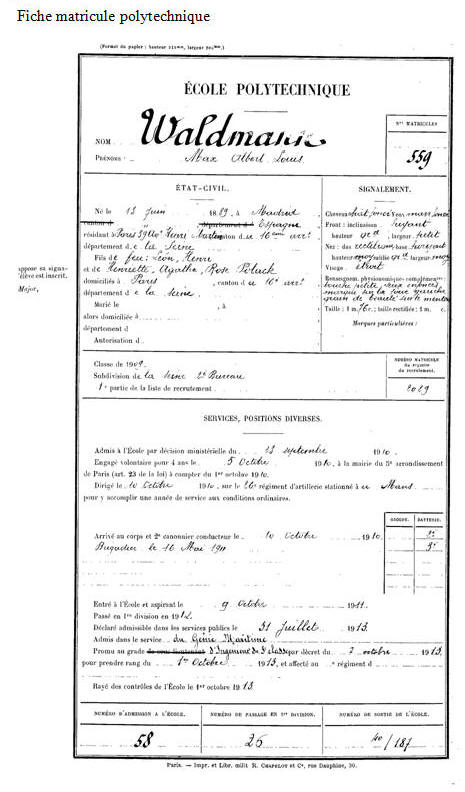 Fiche matricule polytechnique
(Format du papier : hauteur 311mm, largeur 204mm.)
ÉCOLE POLYTECHNIQUE
NOM Waldmann
PRÉNOMS Max Albert Louis
Nos MATRICULES
559
ÉTAT-CIVIL.
Né le 13 juin 1889, à Madrid
Espagne
résidant à Paris Henri Martin canton du 16eme arrt
département de la Seine
Fils de feu : Léon, Henri
et de Henriette, Agathe, Rose Polack
domiciliés à Paris, canton du 16e arrt
département de la Seine
Marié le , à
alors domiciliée à
département d
Autorisation d
SIGNALEMENT.
Cheveux chat. foncé Yeux marr. foncé
Front : inclinaison fuyant
hauteur gde, largeur petit
Nez : dos rectiligne base horizont
hauteur moy saillie gde largeur moy
Visage étroit
Renseignem. physionomiques complémen
bouche petite, yeux enfoncés
marque sur la joue gauche
grain de beauté sur le menton
Taille : 1 m. 76 c. ; taille rectifiée : 1 m. c.
Marques particulières :
appose sa signa-
lière est inscrit.
Major,
Classe de 1909
Subdivision de la Seine 2e Bureau
1e partie de la liste de recrutement
NUMÉRO MATRICULE
du registre
de recrutement.
2029
SERVICES, POSITIONS DIVERSES.
Admis à l'École par décision ministérielle du 23 septembre 1910
Engagé volontaire pour 4 ans le 5 Octobre 1910, à la mairie du 5e arrondissement
de Paris (art. 23 de la loi) à compter du 1er octobre 1910.
Dirigé le 10 Octobre 1910, sur le 26e régiment d'artillerie stationné à Le Mans
pour y accomplir une année de service aux conditions ordinaires.
GROUPE. BATTERIE.
Arrivé au corps et 2e canonnier conducteur le 10 Octobre 1910 2e
Brigadier le 16 Mai 1911 3e
Entré à l'École et aspirant le 9 Octobre 1911.
Passé en 1re division en 1912
Déclaré admissible dans les services publics le 31 Juillet 1913
Admis dans le service du Génie Maritime
Promu au grade d'Ingénieur de 3e classe par décret du 2 octobre 1913
pour prendre rang du 1er Octobre 1913, et affecté au e régiment d
Rayé des contrôles de l'École le 1er octobre 1913
NUMÉRO D'ADMISSION A L'ÉCOLE.
58
NUMÉRO DE PASSAGE EN 1re DIVISION.
25
NUMÉRO DE SORTIE DE L'ÉCOLE.
40/187
Paris. — Impr. et Libr. milit R. CHAPELOT et Ce, rue Dauphine, 30.